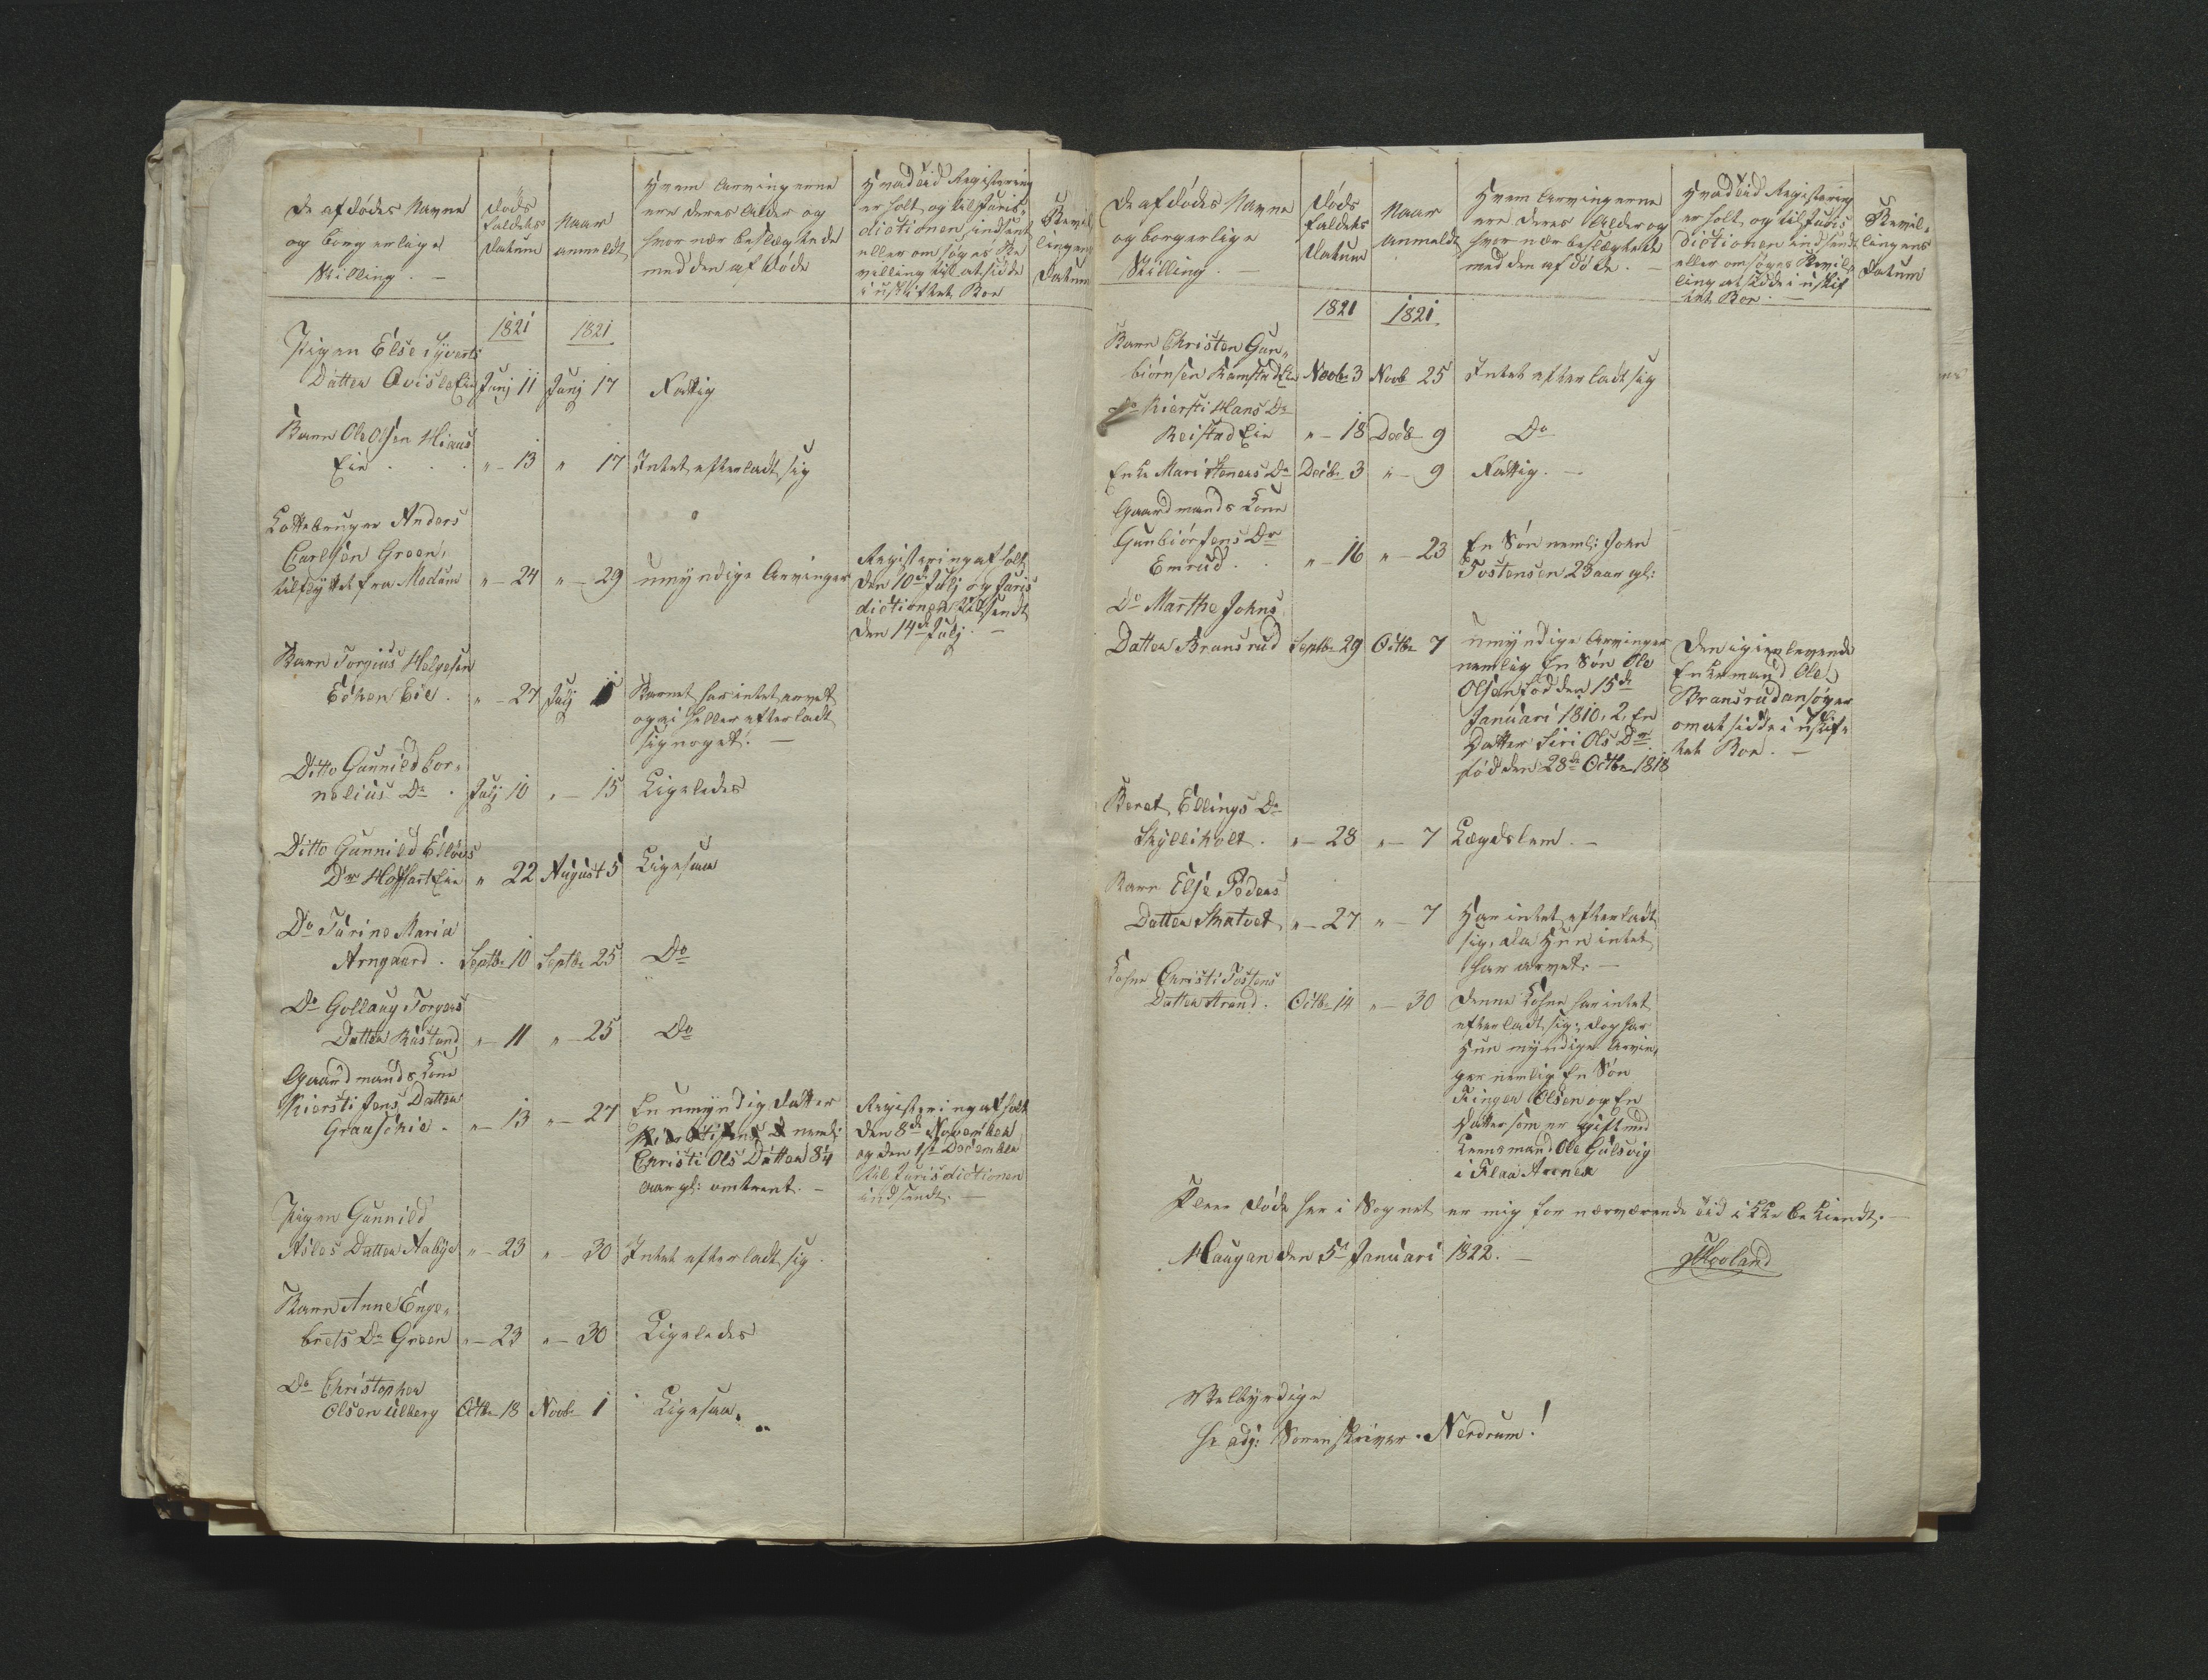 De afdödes Navne
og borgerlige
Stilling. —
Döds
faldets
Datum
Naar
anmeldt
Hvem Arvingerne
ere deres Alder og
hvor nær beslægtede
med den afdöde
Hvad tid Registering
er holt, og til Juris-
dictionen indsent
eller om söges Be
villing til at sidde
i uskiftet Boe
Bevil
lingens
Datum
1821
1821
Pigen Else Syverts
Datter Qvisle Eie Junj 11 Junj 17 Fattig
Barn Ole Olsen Hiaas
Eie . . . " - 13 " 17 Intet efterladt sig
Lottebruger Anders
Carlsen Green,
tilflyttet fra Modum " - 24 " - 29 umyndige Arvinger
Registering afholt
den 10de Julj og Juris
dictionen tilsendt
den 14de Julj. —
Barn Torgius Helgesen
Eie. " - 27 Julj Barnet har intet arvet
og ei heller efterladt
sig noget. —
Ditto Gunnild Cor-
nelius Dr . Julj 10 " - 15 Ligeledes
Ditto Gunnild
Dr Eie " 22 August 5 Ligesaa
Do Turine Maria
Arngaard. Septbr 10 Septbr 25 Do
Do Gollaug Torgers
Datter Rustand " - 11 " - 25 Do
Gaardmands Kone
Kiersti Jens Datter
. " - 13 " - 27 En umyndig Datter
neml:
Christi Ols Datter 8¼
aar gl: omtrent. —
Registering afholt
den 8de November
og den 1ste December
til Jurisdictionen
indsendt. —
Pigen Gunnild
Asles Datter Aabye " - 23 " - 30 Intet efterladt sig.
Barn Anne Enge-
brets Dr Green " - 23 " - 30 Ligeledes
Do Christopher
Olsen Ulberg Octbr 18 Novbr 1 Ligesaa.
De afdödes Navne
og borgerlige
Stilling. —
Döds
faldets
Datum
Naar
anmeldt
Hvem Arvingerne
ere deres Alder og
hvor nær beslægtede
med den afdöde. —
Hvad tid Registering
er holt, og til Juris
dictionen indsendt
eller om söges Bevil-
ling at sidde i uskif
tet Boe. —
Bevil-
lingens
Datum
1821
1821
Barn Christen Gun-
biörnsen Ramstad Eie Novbr 3 Novb 25 Intet efterladt sig
Do Kiersti Hans Dr
Reistad Eie " - 18 Decbr 9 Do
Enke Mari Steners Dr Decbr 3 " - 9 Fattig. —
Gaardmands Kone
Gunbiör Jens Dr
Emrud. . " - 16 " - 23 En Sön neml: John
Tostensen 23 aar gl:
Do Marthe Johns
Datter Bransrud Septbr 29 Octbr 7 umyndige Arvinger
nemlig En Sön Ole
Olsen föd den 15de
Januari 1810, 2, En
Datter Siri Ols Dr
föd den 28de Octbr 1818
Den igienlevende
Enkemand Ole
Bransrud ansöger
om at sidde i uskif-
tet Boe. —
Beret Ellings Dr
Skylleholt. " - 28 " - 7 Lægdslem. —
Barn Else Peders
Datter Skatvet " - 27 " - 7 Har intet efterladt
sig, da Hun intet
har arvet. —
Kone Christi Tostens
Datter Strand. Octbr 14 " - 30 Denne Kone har intet
efterladt sig, dog har
Hun myndige Arvin-
ger nemlig En Sön
Olsen og En
Datter som er gift med
Leensmand Ole Gulsvig
i Flaa Annex
Flere döde her i Sognet er mig for nærværende tid ikke bekiendt. —
Haugan den 5te Januari 1822. —
Velbyrdige
Hr adj: Sorenskriver Nerdrum!